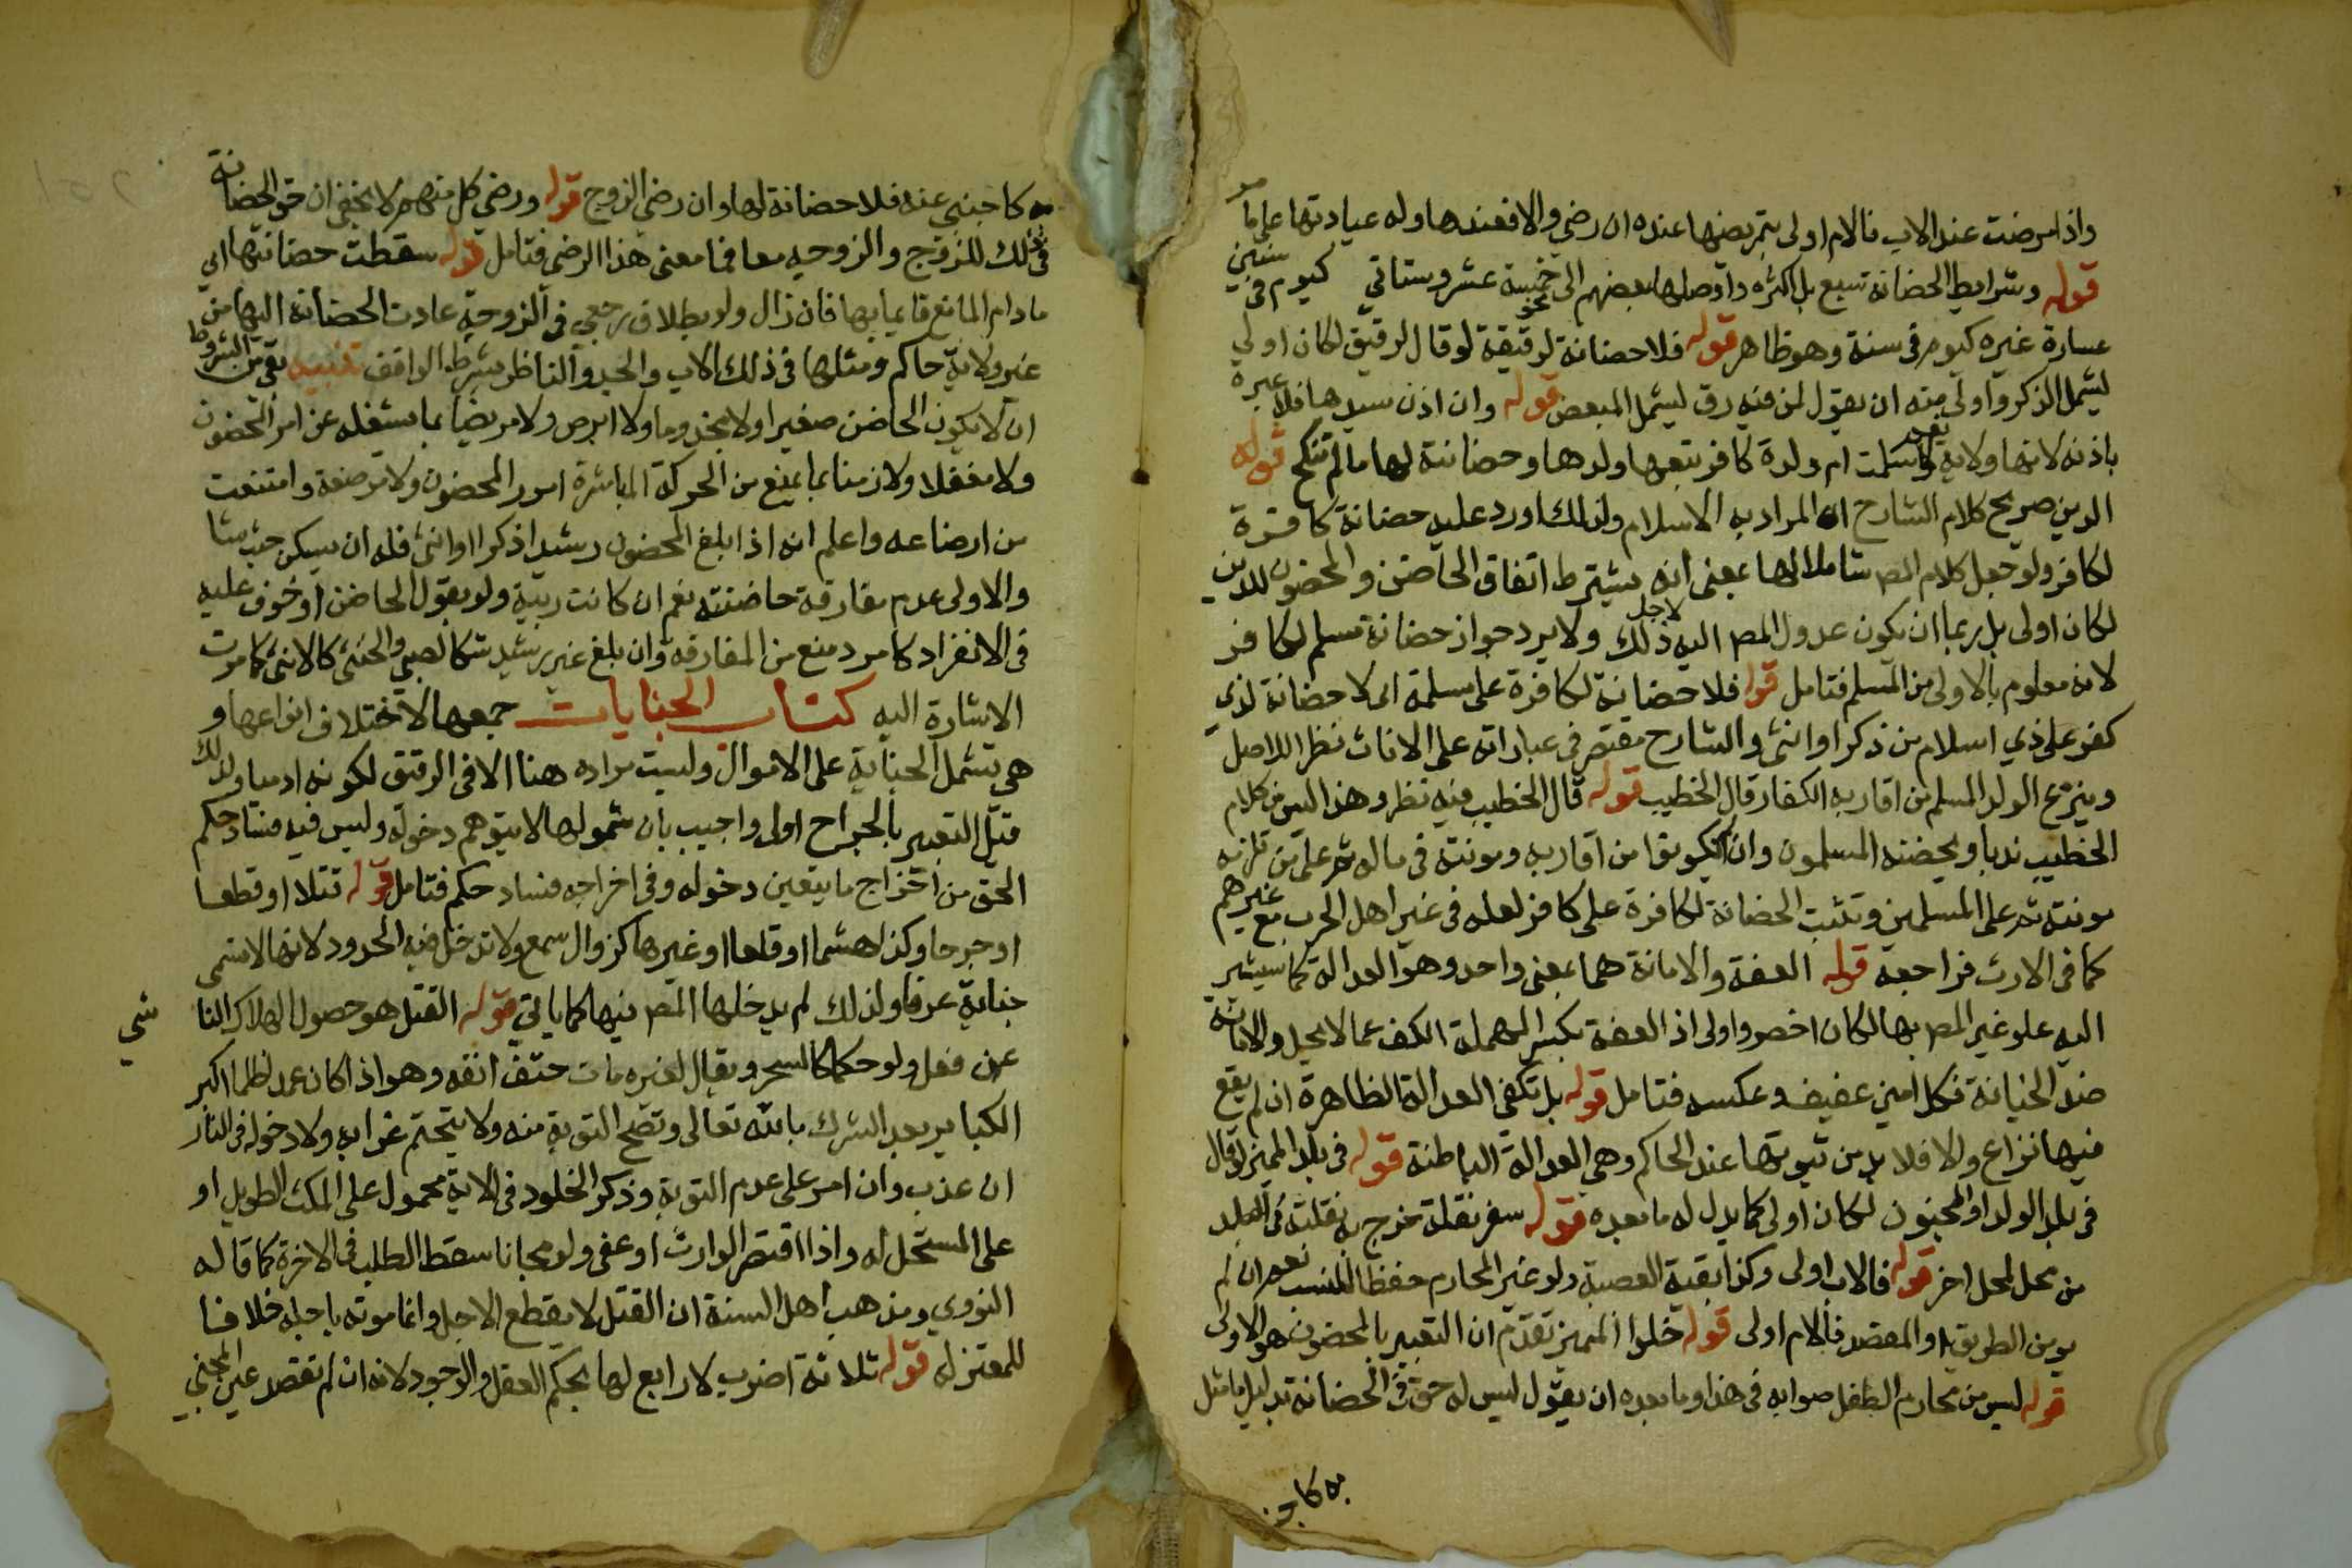 واذا مرضت عند الاب فالام اولى بتمريضها عنده ان رضي والا فعندها وله عيادتها على ما مر
قوله وشرايط الحضانة سبع بل اكثر واوصلها بعضهم الى نحو خمسة عشر وستاتي كيوم في سنين
عبارة غيره كيوم في سنة وهو ظاهر قوله فلا حضانة لرقيقة لو قال لرقيق لكان اولى
ليشمل الذكر واولى منه ان يقول لمن فيه رق ليشمل المبعض قوله وان اذن سيدها فلا عبرة
باذنه لانها ولاية نعم لو اسلمت ام ولد كافر يتبعها ولدها وحضانته لها ما لم تنكح قوله
الدين صريح كلام الشارح ان المراد به الاسلام ولذلك اورد عليه حضانة كافرة
لكافر ولو جعل كلام المص شاملا لها بمعنى انه يشترط اتفاق الحاضن والمحضون للدين
لكان اولى بل ربما ان يكون عدول المص اليه لاجل ذلك ولا يرد جواز حضانة مسلم لكافر
لانه معلوم بالاولى من المسلم فتامل قوله فلا حضانة لكافرة على مسلمة اي لا حضانة لذي
كفر على ذي اسلام من ذكر او انثى والشارح مقتصر في عباراته على الاناث نظرا للاصل
وينزع الولد المسلم من اقاربه الكفار قال الخطيب قوله قال الخطيب فيه نظر وهذا ليس من كلام
الخطيب ندبا ويحضنه المسلمون وان لم يكونوا من اقاربه ومونته في ماله ثم على من تلزمه
مونته ثم على المسلمين وتثبت الحضانة لكافرة على كافر لعله في غير اهل الحرب مع غيرهم
كما في الارث فراجعه قوله العفة والامانة هما بمعنى واحد وهو العدالة كما سيشير
اليه فلو عبر المص بها لكان اخصر واولى اذ العفة بكسر المهملة الكف عما لا يحل والامانة
ضد الخيانة فكل امين عفيف وعكسه فتامل قوله بل تكفي العدالة الظاهرة ان لم يقع
فيها نزاع والا فلا بد من ثبوتها عند الحاكم وهي العدالة الباطنة قوله في بلد المميز لو قال
في بلد الولد او المجنون لكان اولى كما يدل له ما بعده قوله سفر نقلة خرج به نقلته في البلد
من محل لمحل اخر قوله فالاب اولى وكذا بقية العصبة ولو غير المحارم حفظا للنسب نعم ان لم
يومن الطريق او المقصد فالام اولى قوله خلوا المميز تقدم ان التعبير بالمحضون هو الاولى
قوله ليس من محارم الطفل صوابه في هذا وما بعده ان يقول ليس له حق في الحضانة بدليل ما مثل
به كاجنبي
به كاجنبي عنه فلا حضانة لها وان رضي الزوج قوله ورضي كل منهم لا يخفى ان حق الحضانة
في ذلك للزوج والزوجة معا فما معنى هذا الرضى فتامل قوله سقطت حضانتها اي
ما دام المانع قايما بها فان زال ولو بطلاق رجعي في الزوجة عادت الحضانة اليها من
غير ولاية حاكم ومثلها في ذلك الاب والجد والناظر بشرط الواقف تنبيه بقي من الشروط
ان لا يكون الحاضن صغيرا ولا مجذوما ولا ابرص ولا مريضا بما يشغله عن امر المحضون
ولا مغفلا ولا زمنا بما يمنع من الحركة لمباشرة امور المحضون ولا مرضعة وامتنعت
من ارضاعه واعلم انه اذا بلغ المحضون رشيدا ذكرا او انثى فله ان يسكن حيث شا
والاولى عدم مفارقة حاضنته نعم ان كانت ريبة ولو بقول الحاضن او خوف عليه
في الانفراد كامرد منع من المفارقة وان بلغ غير رشيد فكالصبي والخنثى كالانثى كما مرت
الاشارة اليه كتاب الجنايات جمعها لاختلاف انواعها و
هي تشمل الجناية على الاموال وليست مراده هنا الا في الرقيق لكونه ادميا ولذلك
قيل التعبير بالجراح اولى واجيب بان شمولها لا يتوهم دخوله وليس فيه فساد حكم
احق من اخراج ما يتعين دخوله وفي اخراجه فساد حكم فتامل قوله قتلا او قطعا
او جرحا وكذا هشما او قلعا او غيرها كزوال سمع ولا تدخل فيه الحدود لانها لا تسمى
جناية عرفا ولذلك لم يدخلها المص فيها كما ياتي قوله القتل هو حصول الهلاك النا
شي
عن فعل ولو حكما كالسحر ويقال لغيره مات حتف انفه وهو اذا كان عمدا ظلما اكبر
الكباير بعد الشرك بالله تعالى وتصح التوبة منه ولا يتحتم عذابه ولا دخوله في النار
ان عذب وان اصر على عدم التوبة وذكر الخلود في الاية محمول على المكث الطويل او
على المستحل له واذا اقتص الوارث او عفى ولو مجانا سقط الطلب في الاخرة كما قاله
النووي ومذهب اهل السنة ان القتل لا يقطع الاجل وانما موته باجله خلافا
للمعتزلة قوله ثلاثة اضرب لا رابع لها بحكم العقل والوجود لانه ان لم تقصد عين المجني